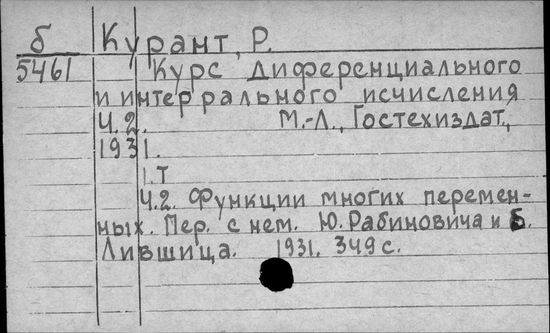 б Курант, Р.
5461 Курс диференциального
и интергрального исчисления
Ч.2. М.-Л., Гостехиздат.,
1931.
1.т
Ч.2. Функции многих перемен-
ных. Пер. с нем. Ю. Рабиновича и Б.
Лившица. 1931. 349 с.